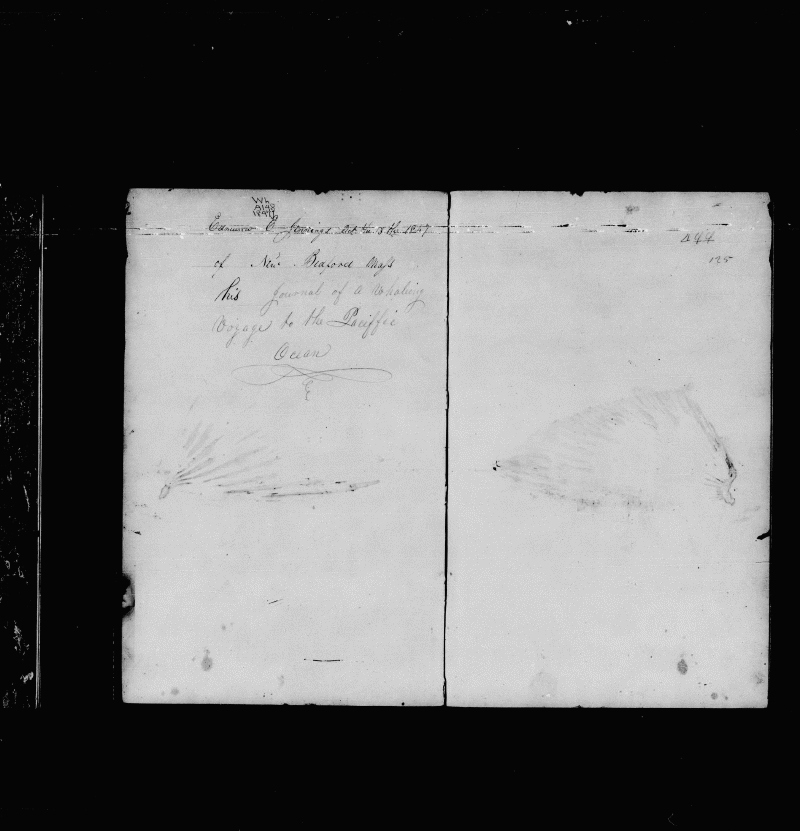 Edmund C Jennings Oct the 8 th 1847
of New Bedford Mass
his Journal of a Whaling
Voyage to the Paciffic
Ocean
125